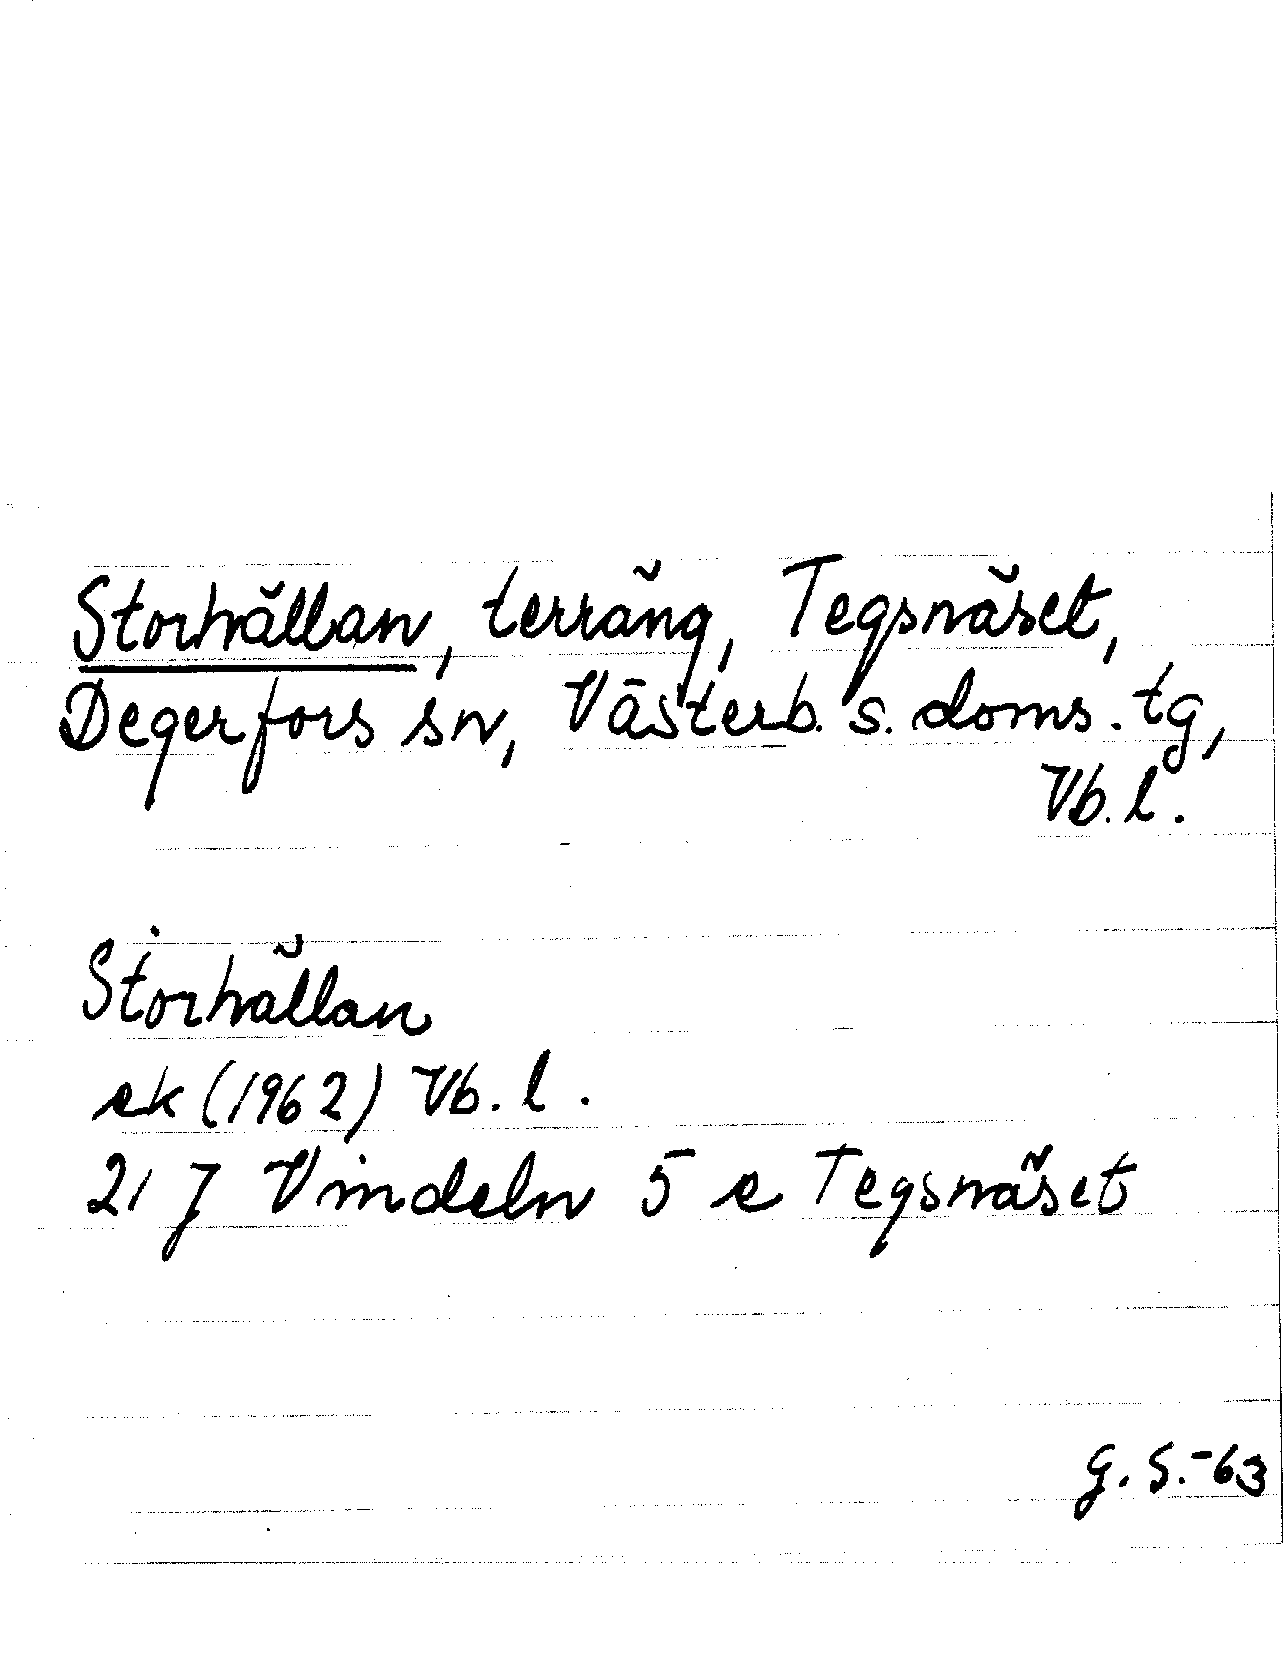 Storhällan, terräng, Tegsnäset,
Degerfors sn, Västerb. s. doms. tg,
Vb. l.
Storhällan
ek (1962) Vb. l.
21 J Vindeln 5 e Tegsnäset
G. S. -63